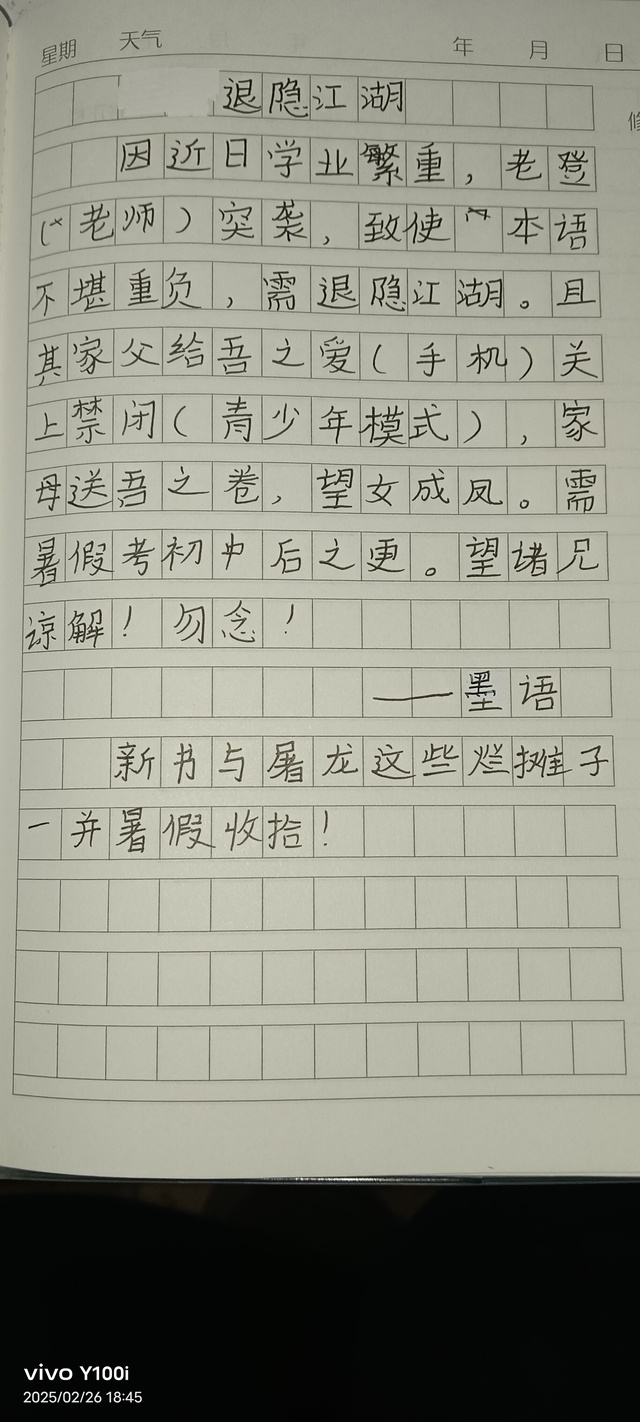 星期 天气 年 月 日
退隐江湖
因近日学业繁重，老登
(老师）突袭，致使 本语
不堪重负，需退隐江湖。且
其家父给吾之爱(手机)关
上禁闭(青少年模式)，家
母送吾之卷，望女成凤。需
暑假考初中后之更。望诸兄
谅解！勿念！
——墨语
新书与屠龙这些烂摊子
一并暑假收拾！
vivo Y100i
2025/02/26 18:45